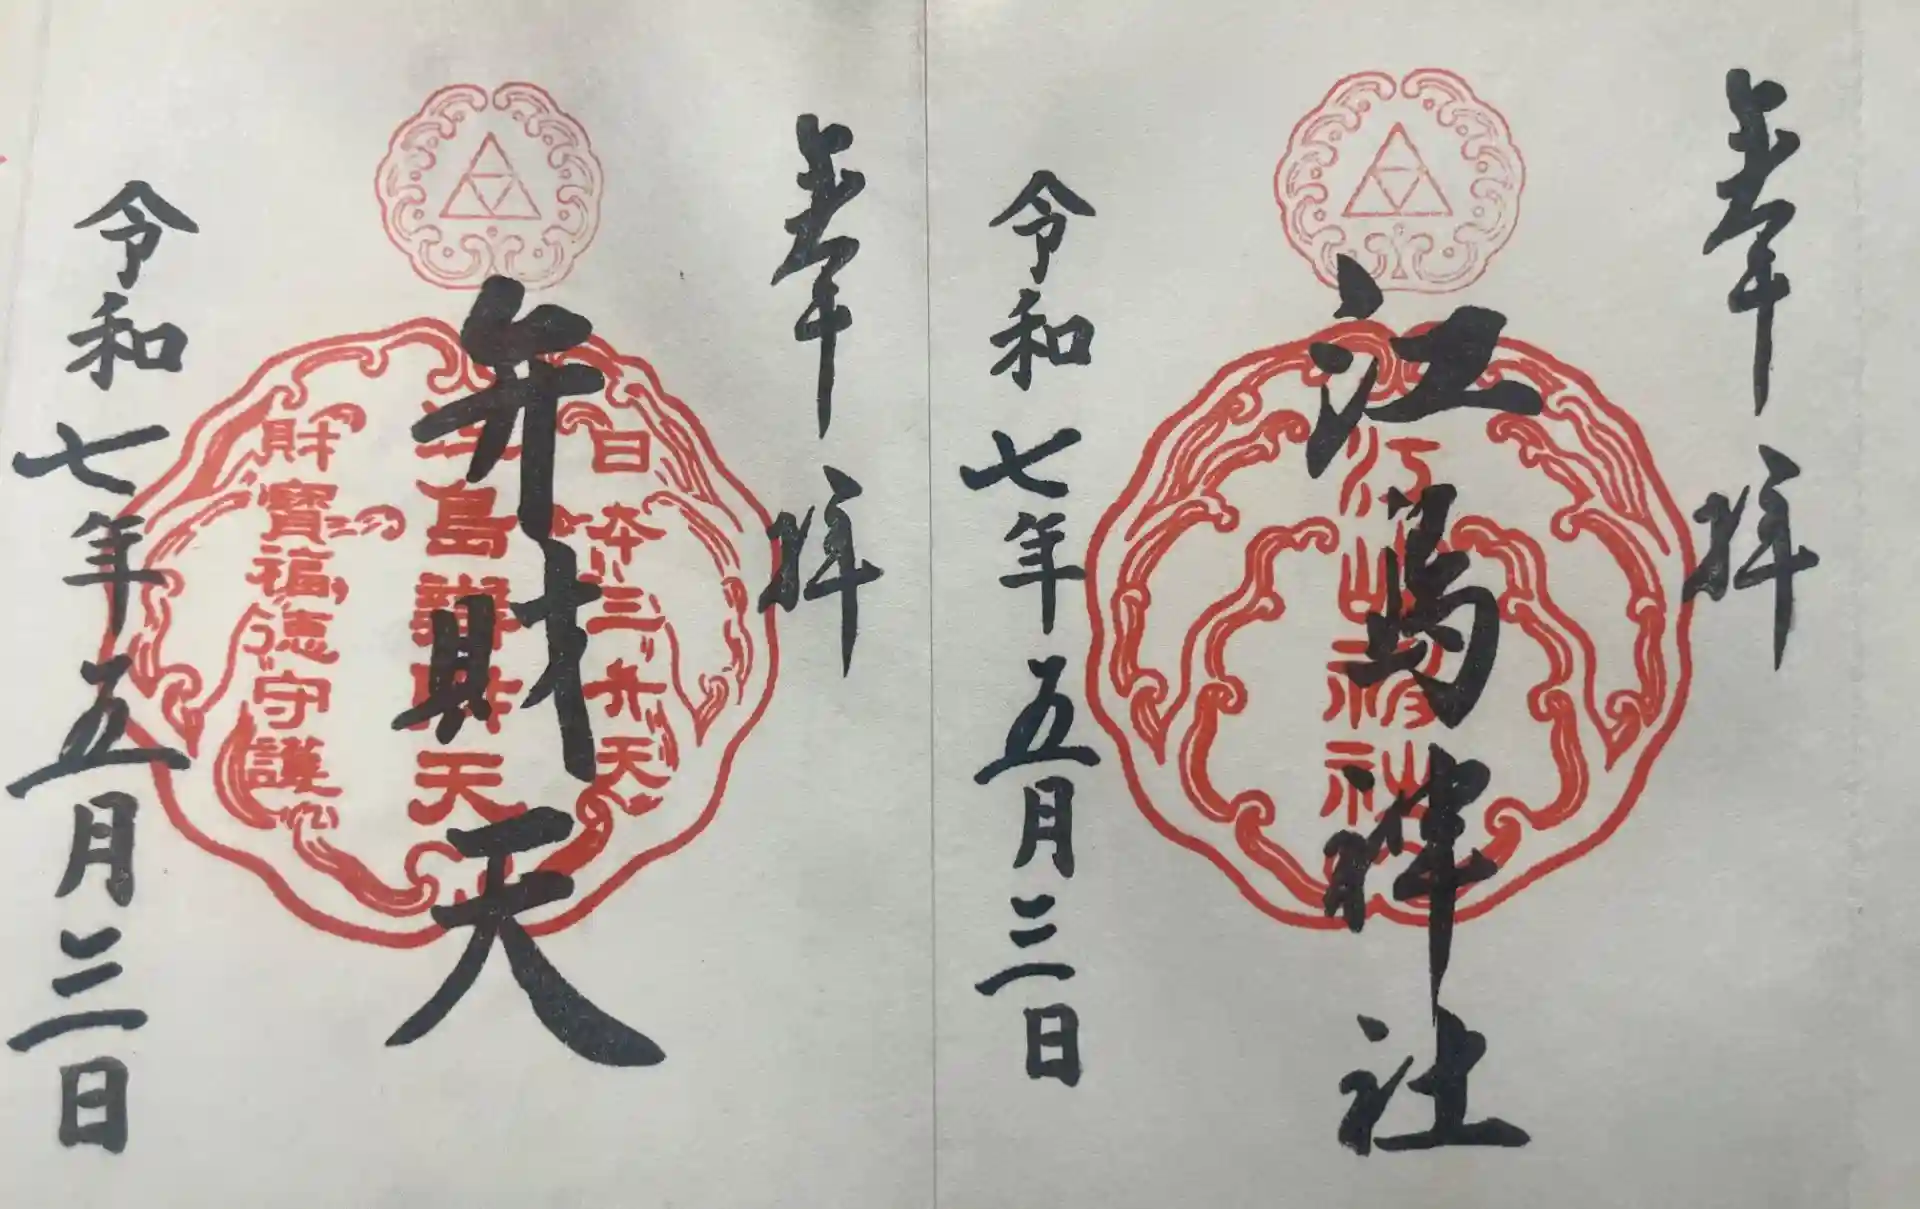 奉拝
江島神社
江島神社
令和七年五月三日
奉拝
弁財天
日本三弁天
江島辨財天
財寶福徳守護
令和七年五月三日